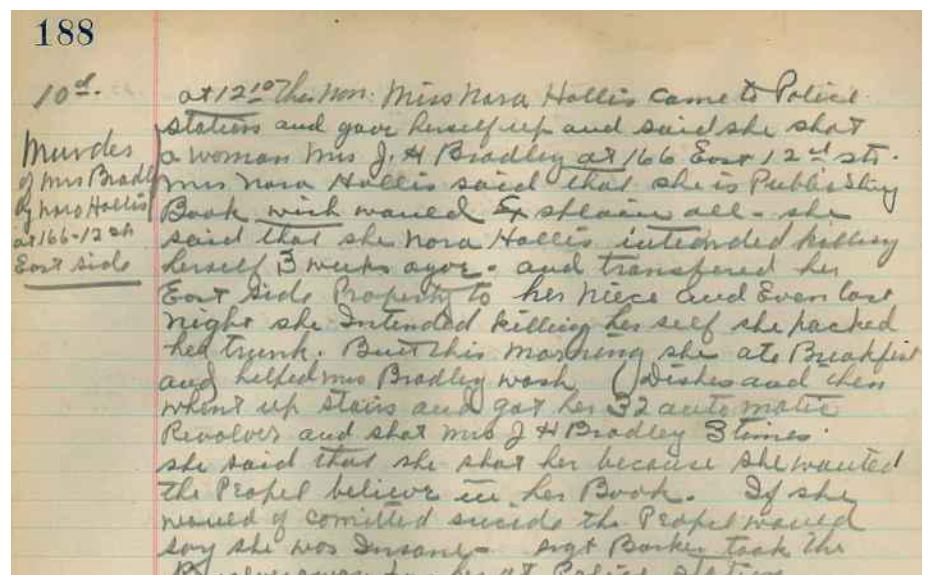 188
10th.
Murder
of Mrs Bradley
by Nora Hollis
at 166-12 st
East side
at 12 10 this non. Miss Nora Hollis came to Police
station and gave herself up and said she shot
a woman Mrs J. H Bradley at 166 East 12th str.
Mrs Nora Hollis said that she is Publishing
Book wich waued Explain all - she
said that she Nora Hollis intended killing
herself 3 weeks agoe - and transfered her
East Side Property to her niece and Even last
night she Intended killing her self she packed
her trunk. But this morning she ate Breakfist
and helped Mrs Bradley wash Dishes and then
whent up stairs and got her 32 automatic
Revolver and shot Mrs J H Bradley 3 times.
she said that she shot her because she wanted
the Propel believe in her Book. If she
waued of comitted suicide the Propel waued
say she was Insane - Sigt Barker took the
at Police station